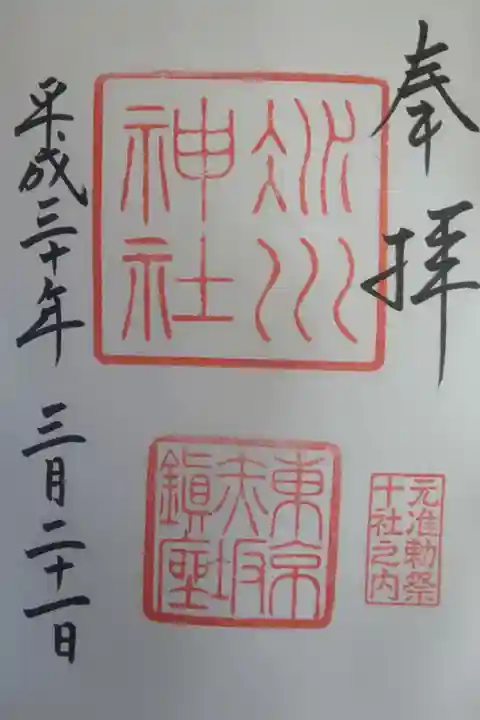 奉拝
氷川
神社
東京
赤坂
鎮座
元准勅祭
十社之内
平成三十年 三月二十一日